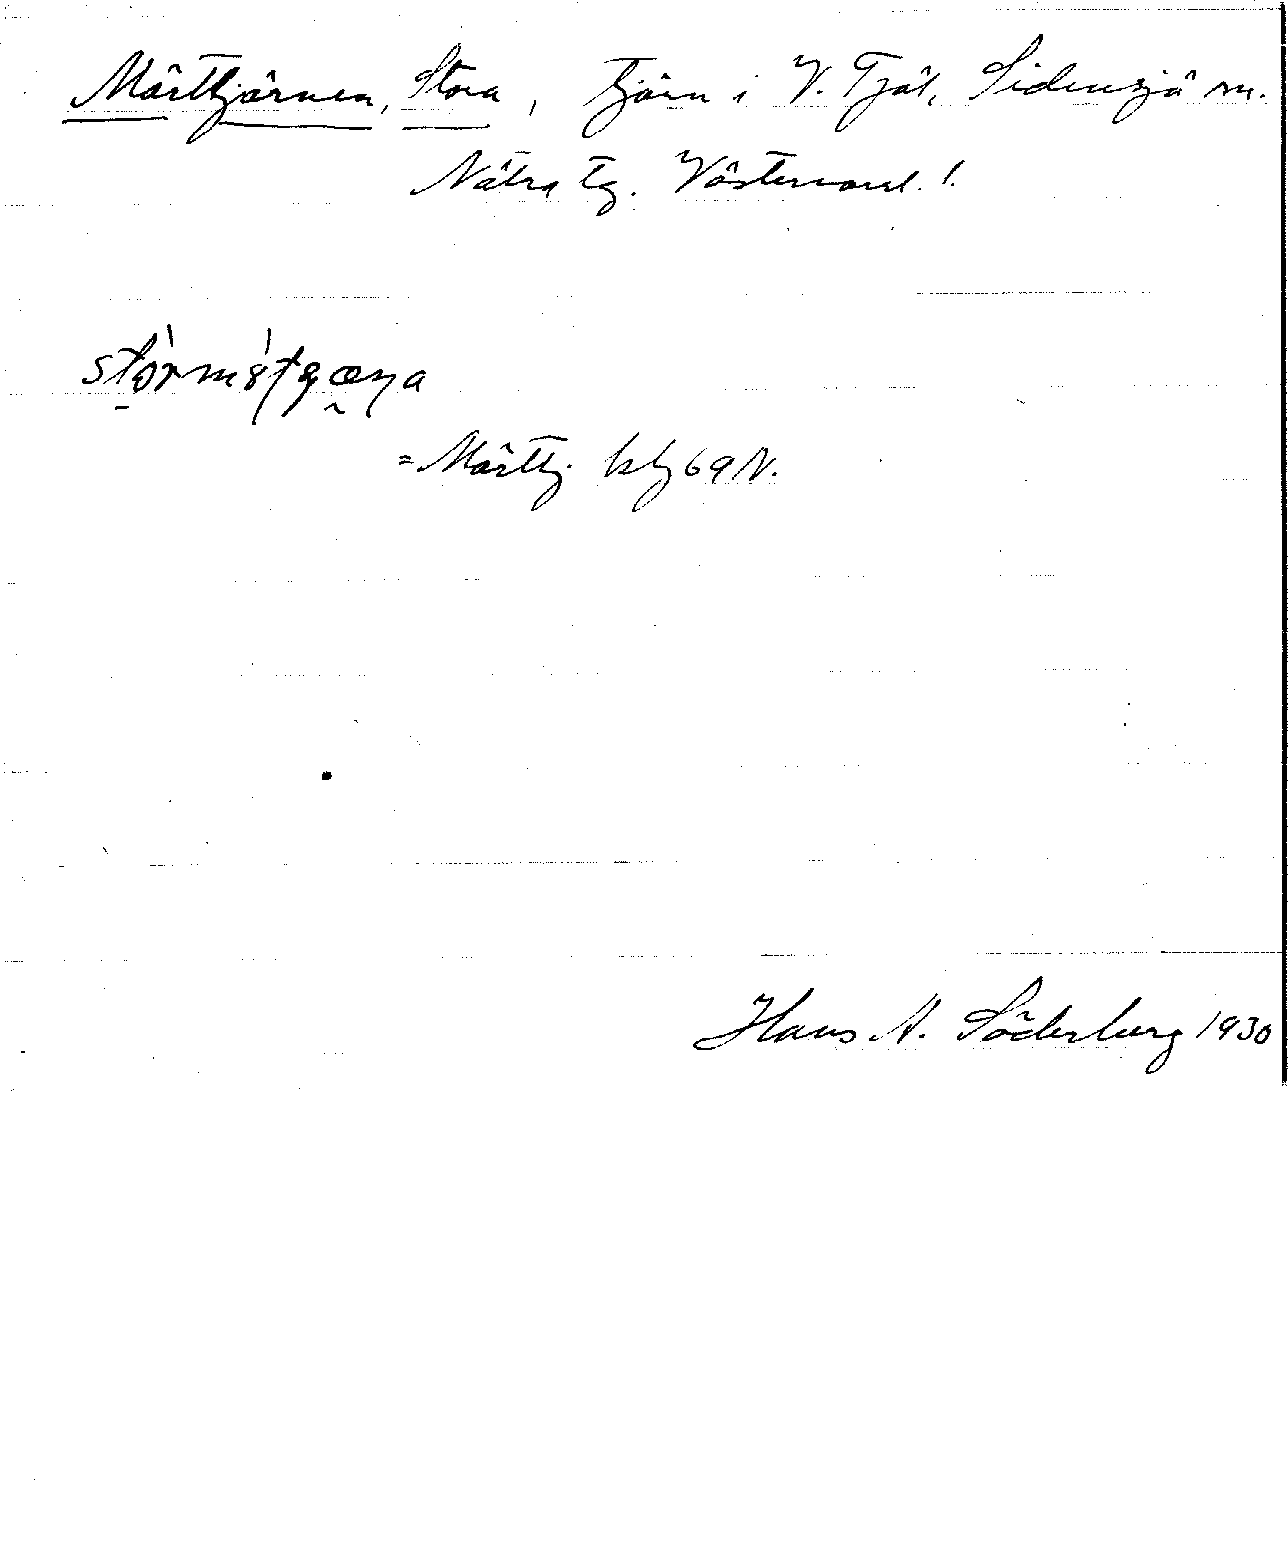 Mörttjärnen, Stora, tjärn i V. Tjäl, Sidensjö sn.
Nätra tg. Västernorrl. l.
= Mörttj. kbl 69 N.
Hans A. Söderberg 1930